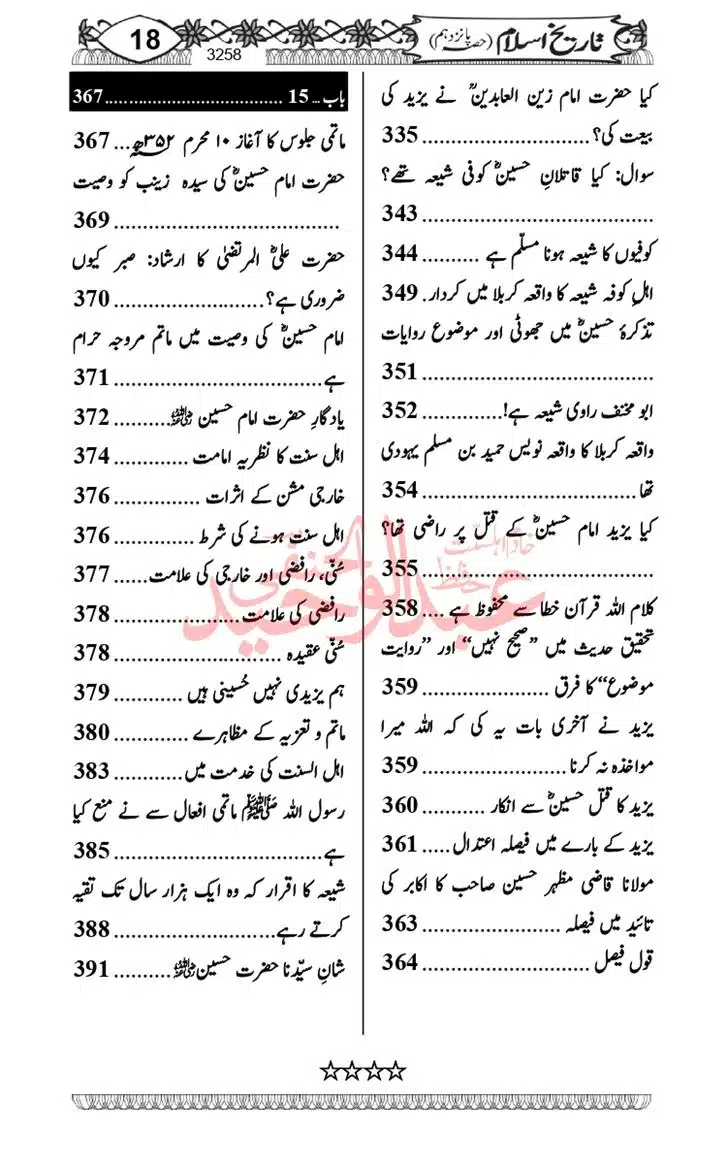 تاریخ اسلام (حصہ پانزدہم)
18
3258
کیا حضرت امام زین العابدینؒ نے یزید کی
بیعت کی؟ ............................ 335
سوال: کیا قاتلانِ حسینؓ کوفی شیعہ تھے؟
....................................... 343
کوفیوں کا شیعہ ہونا مسلّم ہے .......... 344
اہلِ کوفہ شیعہ کا واقعہ کربلا میں کردار. 349
تذکرۂ حسینؓ میں جھوٹی اور موضوع روایات
....................................... 351
ابو مخنف راوی شیعہ ہے!.............. 352
واقعہ کربلا کا واقعہ نویس حمید بن مسلم یہودی
تھا .................................... 354
کیا یزید امام حسینؓ کے قتل پر راضی تھا؟
....................................... 355
کلام اللہ قرآن خطا سے محفوظ ہے .... 358
تحقیق حدیث میں ’’صحیح نہیں‘‘ اور ’’روایت
موضوع‘‘ کا فرق ..................... 359
یزید نے آخری بات یہ کی کہ اللہ میرا
مواخذہ نہ کرنا ........................ 359
یزید کا قتل حسینؓ سے انکار ........... 360
یزید کے بارے میں فیصلہ اعتدال ..... 361
مولانا قاضی مظہر حسین صاحب کا اکابر کی
تائید میں فیصلہ ........................ 363
قول فیصل ............................ 364
باب ... 15 .................................... 367
ماتمی جلوس کا آغاز ۱۰ محرم ۳۵۲ھ ... 367
حضرت امام حسینؓ کی سیدہ زینب کو وصیت
...................................... 369
حضرت علیؓ المرتضیٰ کا ارشاد: صبر کیوں
ضروری ہے؟ ......................... 370
امام حسینؓ کی وصیت میں ماتم مروجہ حرام
ہے ................................... 371
یادگارِ حضرت امام حسین رضی اللہ عنہ .......... 372
اہل سنت کا نظریہ امامت ............. 374
خارجی مشن کے اثرات ............... 376
اہل سنت ہونے کی شرط .............. 376
سُنّی، رافضی اور خارجی کی علامت ...... 377
رافضی کی علامت ...................... 378
سُنّی عقیدہ ............................ 378
ہم یزیدی نہیں حُسینی ہیں .............. 379
ماتم و تعزیہ کے مظاہرے ............. 380
اہل السنت کی خدمت میں ............ 383
رسول اللہ ﷺ ماتمی افعال سے نے منع کیا
ہے ................................... 385
شیعہ کا اقرار کہ وہ ایک ہزار سال تک تقیہ
کرتے رہے .......................... 388
شانِ سیّدنا حضرت حسین رضی اللہ عنہ .......... 391
خادم اہلسنت
حافظ عبدالوحید الحنفی
☆☆☆☆